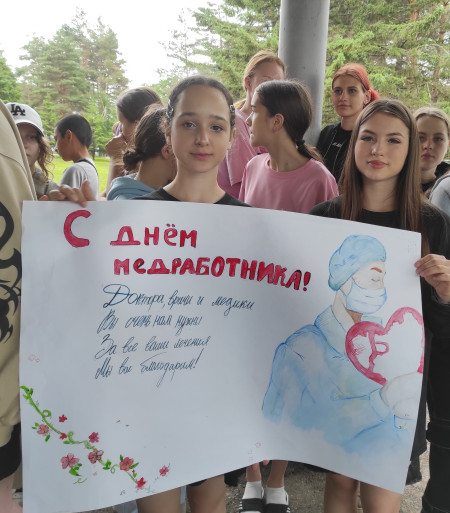 LA
С ДНЁМ
МЕДРАБОТНИКА!
Доктора, врачи и медики
Вы очень нам нужны
За все ваши лечения
Мы вас благодарим!